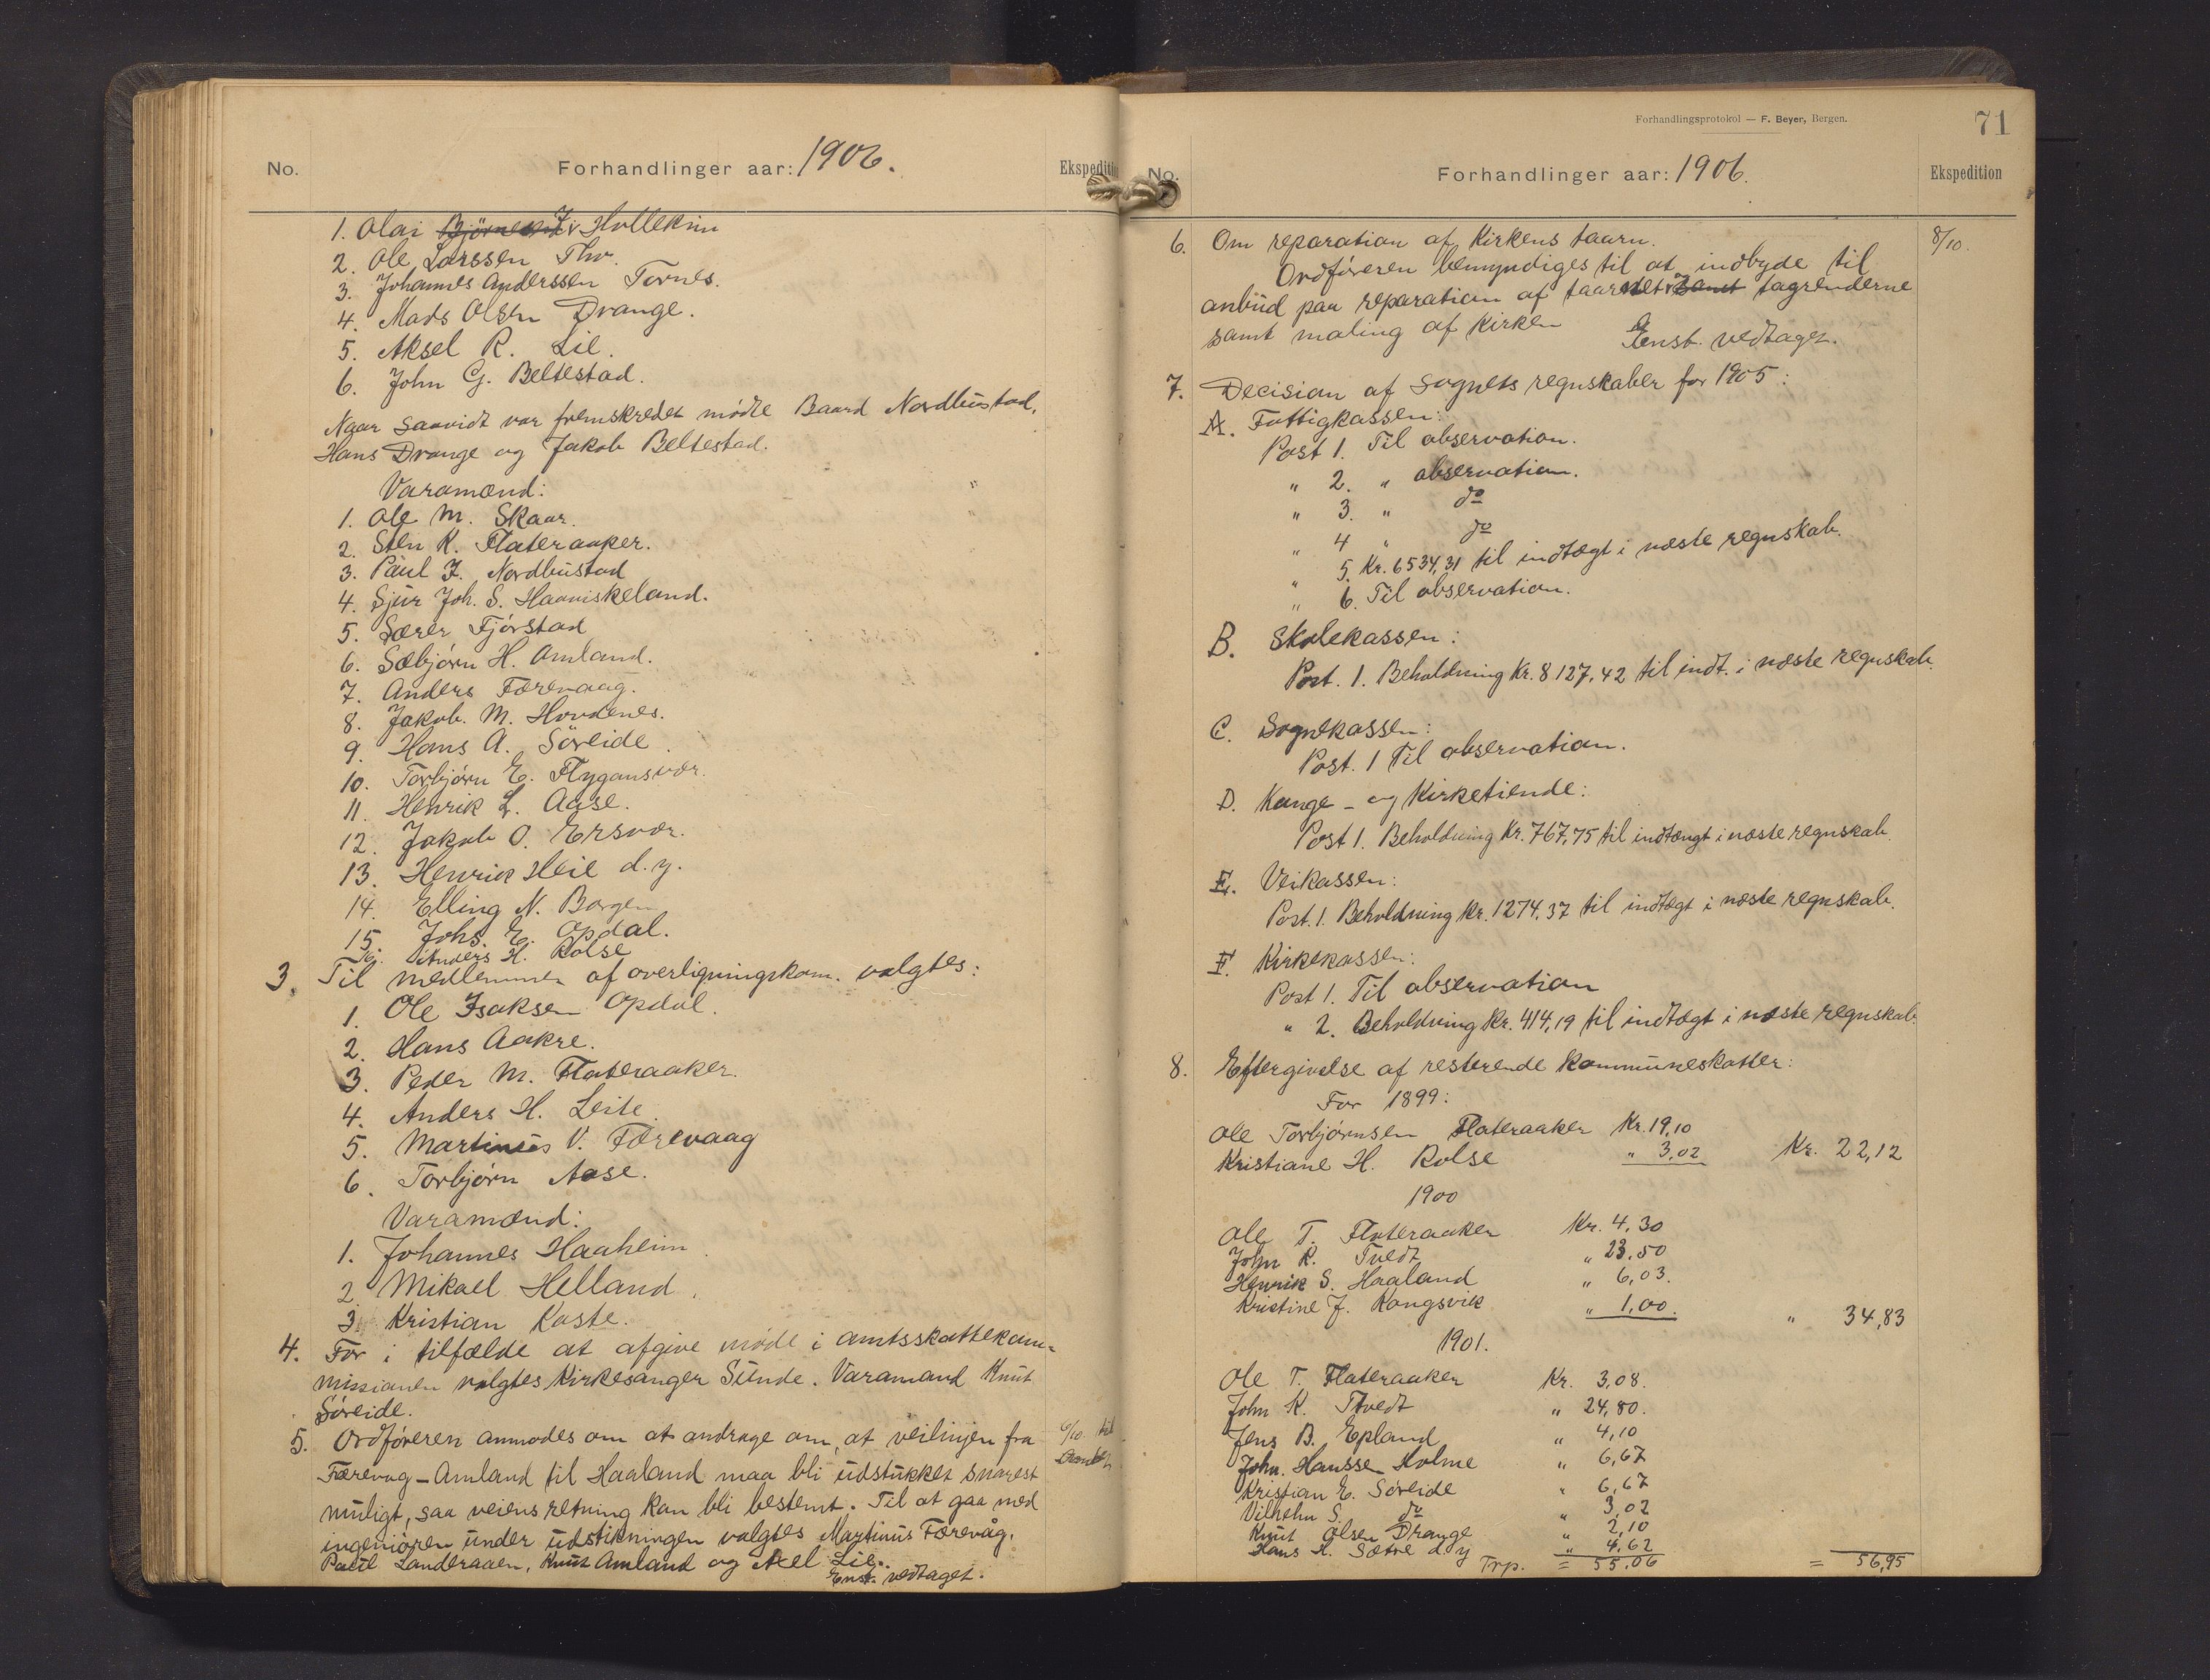 No.
Forhandlinger aar: 1906.
Ekspedition
1. Olai Hollekim
2. Ole Larssen Tho.
3. Johannes Anderssen Tornes.
4. Mads Olsen Drange.
5. Aksel R. Lie.
6. John G. Beltestad.
Naar saavidt var fremskredet mødte Baard Nordhustad,
Hans Drange og Jakob Beltestad.
Varamænd:
1. Ole M. Skaar.
2. Sten K. Flateraaker.
3. Paul J. Nordhustad
4. Sjur Joh. S. Haaviskeland.
5. Særer Fjørstad
6. Sæbjørn H. Amland.
7. Anders Færevaag.
8. Jakob. M. Hovdenes.
9. Hans A. Søreide.
10. Torbjørn E. Flygansvær.
11. Henrik L. Aase.
12. Jakob O. Ersvær.
13. Henrik Heie d.y.
14. Elling N. Borgen
15. Johs. E. Opdal.
16. Anders H. Rolse
3. Til medlemmer af overligningskom. valgtes:
1. Ole Isaksen Opdal.
2. Hans Aakre.
3. Peder M. Flateraaker.
4. Anders H. Leite.
5. Martinus V. Færevaag
6. Torbjørn Aase.
Varamænd:
1. Johannes Haaheim.
2 Mikael Helland.
3 Kristian Kaste.
4. For i tilfælde at afgive møde i amtsskattekom=
missionen valgtes Kirkesanger Sunde. Varamand Knut
Søreide.
5. Ordføreren anmodes om at andrage om, at veilinjen fra
6/10 til
Færevag - Amland til Haaland maa bli udstukket snarest
muligt, saa veiens retning kan bli bestemt. Til at gaa med
ingeniøren under udstikningen valgtes Martinus Færevåg,
Paul Landeraaen, Knut Amland og Axel Lie.
Enst. vedtaget.
Forhandlingsprotokol — F. Beyer, Bergen.
71
No.
Forhandlinger aar: 1906.
Ekspedition
6. Om reparation af Kirkens taarn.
8/10.
Ordføreren bemyndiges til at indbyde til
anbud paa reparation af taarnet samt tagrenderne
samt maling af Kirken
Enst. vedtaget.
7. Decision af Sognets regnskaber for 1905:
A. Fattigkassen:
Post 1. Til observation.
" 2. " observation.
" 3. " do
" 4 " do
" 5. Kr. 6534,31 til indtægt i næste regnskab.
" 6. Til observation.
B. Skolekassen:
Post. 1. Beholdning Kr. 8127,42 til indt. i næste regnskab.
C. Sognekassen:
Post. 1 Til observation.
D. Konge - og Kirketiende:
Post 1. Beholdning Kr. 767,75 til indtængt i næste regnskab.
E. Veikassen:
Post. 1. Beholdning Kr. 1274,37 til indtægt i næste regnskab.
F. Kirkekassen:
Post 1. Til observation
" 2. Beholdning Kr. 414,19 til indtægt i næste regnskab.
8. Eftergivelse af resterende Kommuneskatter:
For 1899:
Ole Torbjørnsen Flateraaker Kr. 19,10
Kristiane H. Rolse " 3,02 Kr. 22,12
1900
Ole T. Flateraaker Kr. 4,30
John K. Tvedt " 23,50
Henrik S. Haaland " 6,03.
Kristine J. Rongsvik " 1,00. " 34,83
1901.
Ole T. Flateraaker Kr. 3,08.
John K. Tvedt " 24,80.
Jens B. Epland " 4,10
John. Hanssen Holme " 6,67
Kristian E. Søreide " 6,67
Vilhelm S. do " 3,02
Knut Olsen Drange " 2,10
Hans H. Sætre d y " 4,62
Trp. = 55,06 = 56,95